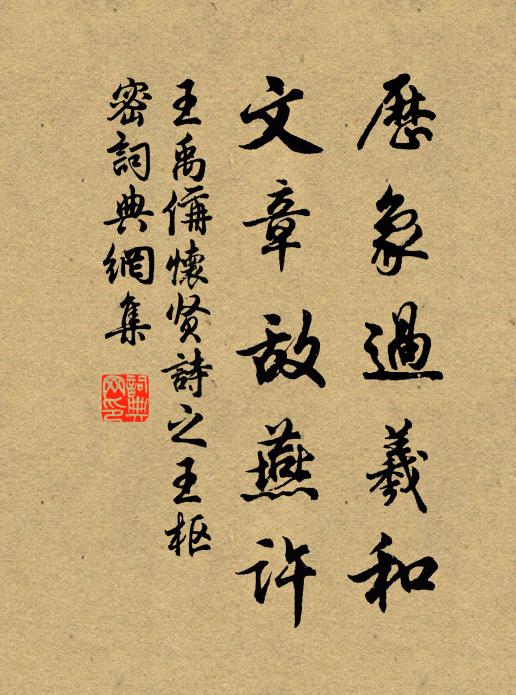 歷象過羲和
文章敌燕許
王禹偁懷贤詩之王枢
密詞典網集
詞典
网印